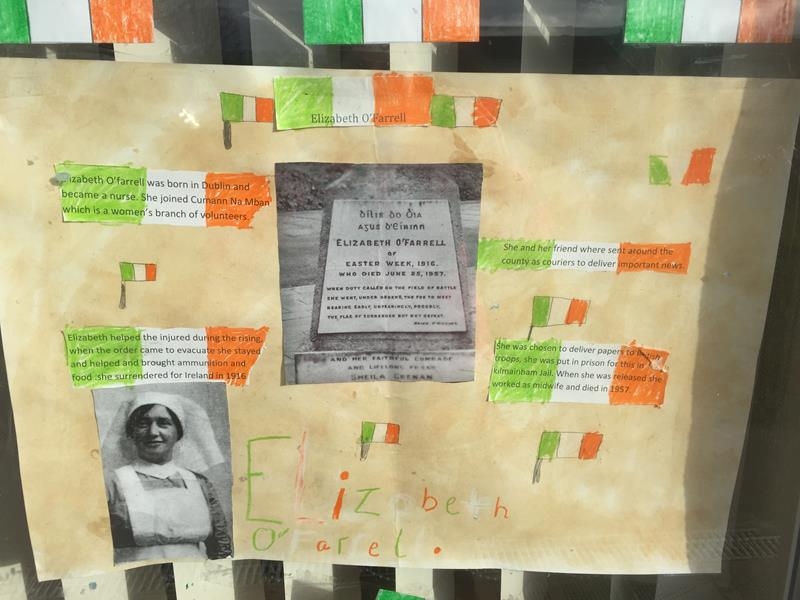 Elizabeth O'Farrell
Elizabeth O'farrell was born in Dublin and
became a nurse. She joined Cumann Na Mban
which is a women's branch of volunteers.
Elizabeth helped the injured during the rising,
when the order came to evacuate she stayed
and helped and brought ammunition and
food .she surrendered for Ireland in 1916
dílis do Dia
agus d'Éirinn
ELIZABETH O'FARRELL
OF
EASTER WEEK, 1916.
WHO DIED JUNE 25, 1957.
WHEN DUTY CALLED ON THE FIELD OF BATTLE
SHE WENT, UNDER ORDERS, THE FOE TO MEET
BEARING EASILY, UNFEARINGLY, PROUDLY,
THE FLAG OF SURRENDER BUT NOT DEFEAT.
AND HER FAITHFUL COMRADE
AND LIFELONG FRIEND
SHEILA GRENAN
She and her friend where sent around the
county as couriers to deliver important news.
She was chosen to deliver papers to British
troops, she was put in prison for this in
kilmainham Jail. When she was released she
worked as midwife and died in 1957.
Elizabeth
O'Farel.